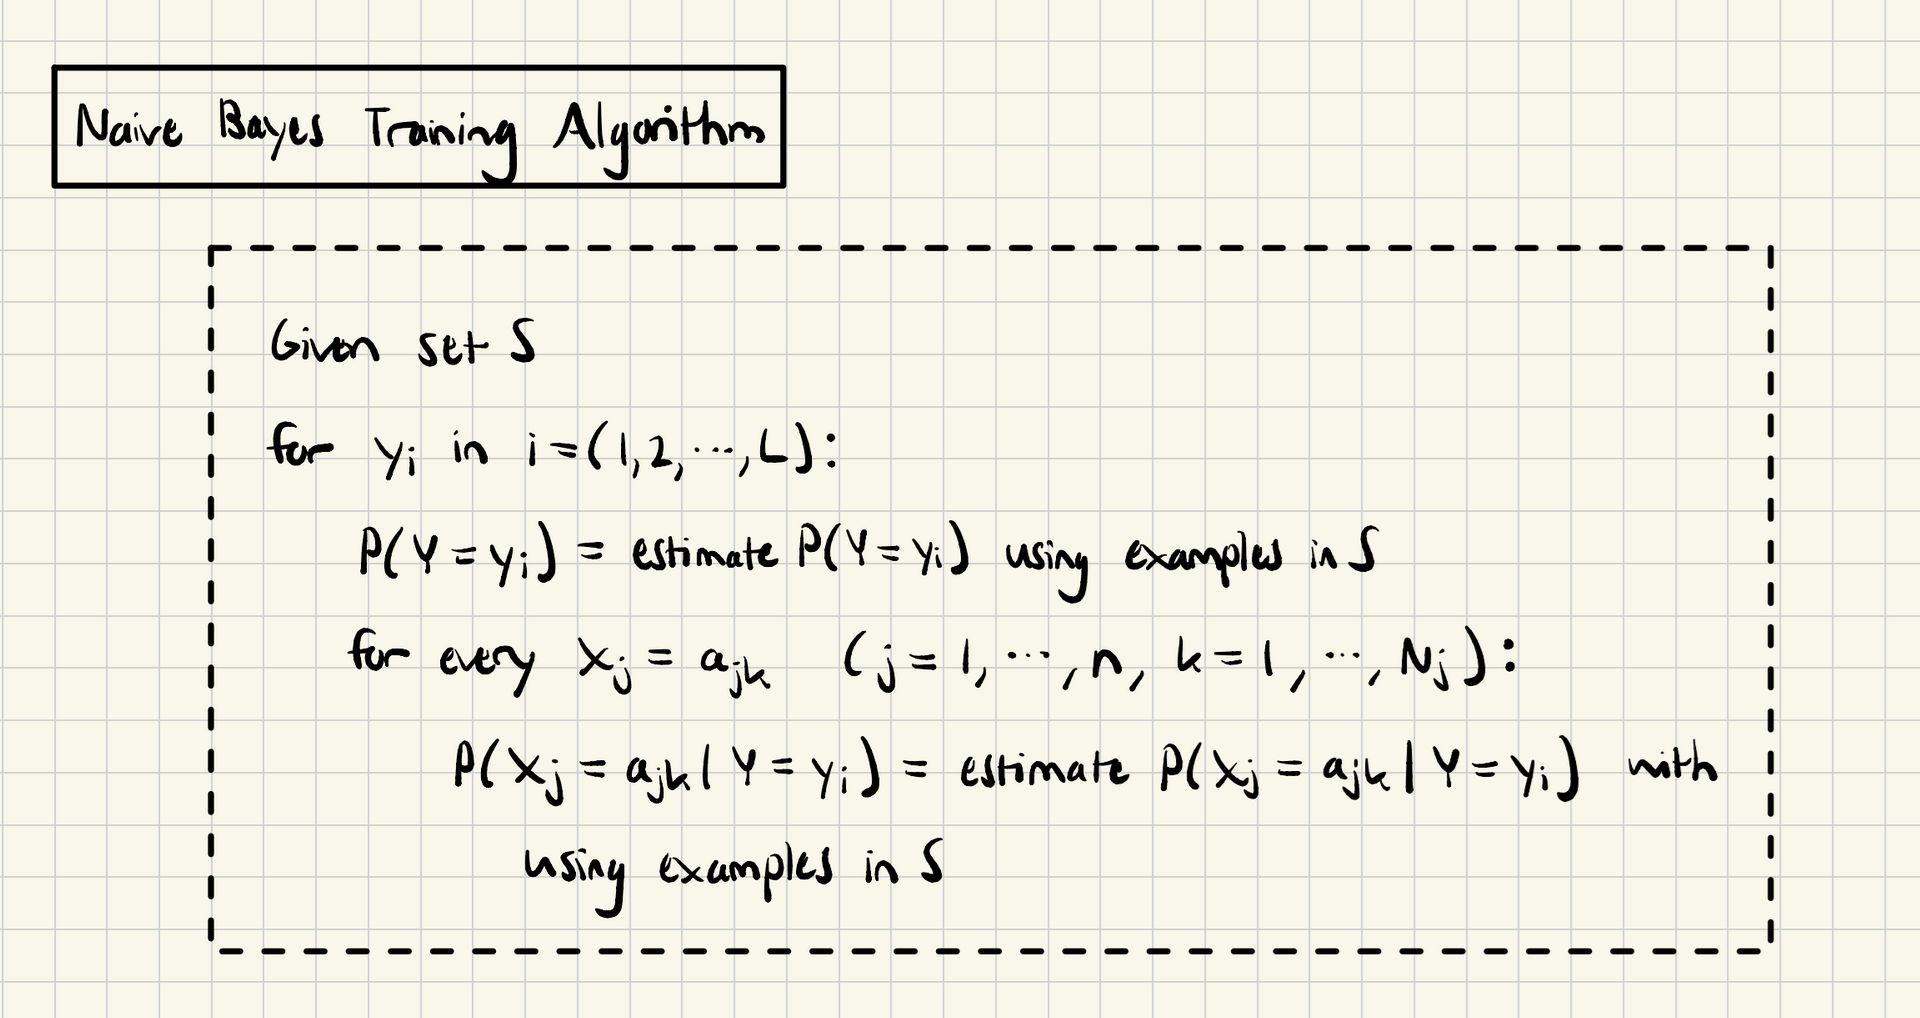 Naive Bayes Training Algorithm
Given set S
for yᵢ in i=(1,2,⋯,L):
P(Y=yᵢ) = estimate P(Y=yᵢ) using examples in S
for every Xⱼ = aⱼₖ (j=1,⋯,n, k=1,⋯,Nⱼ):
P(Xⱼ = aⱼₖ | Y=yᵢ) = estimate P(Xⱼ = aⱼₖ | Y=yᵢ) with
using examples in S